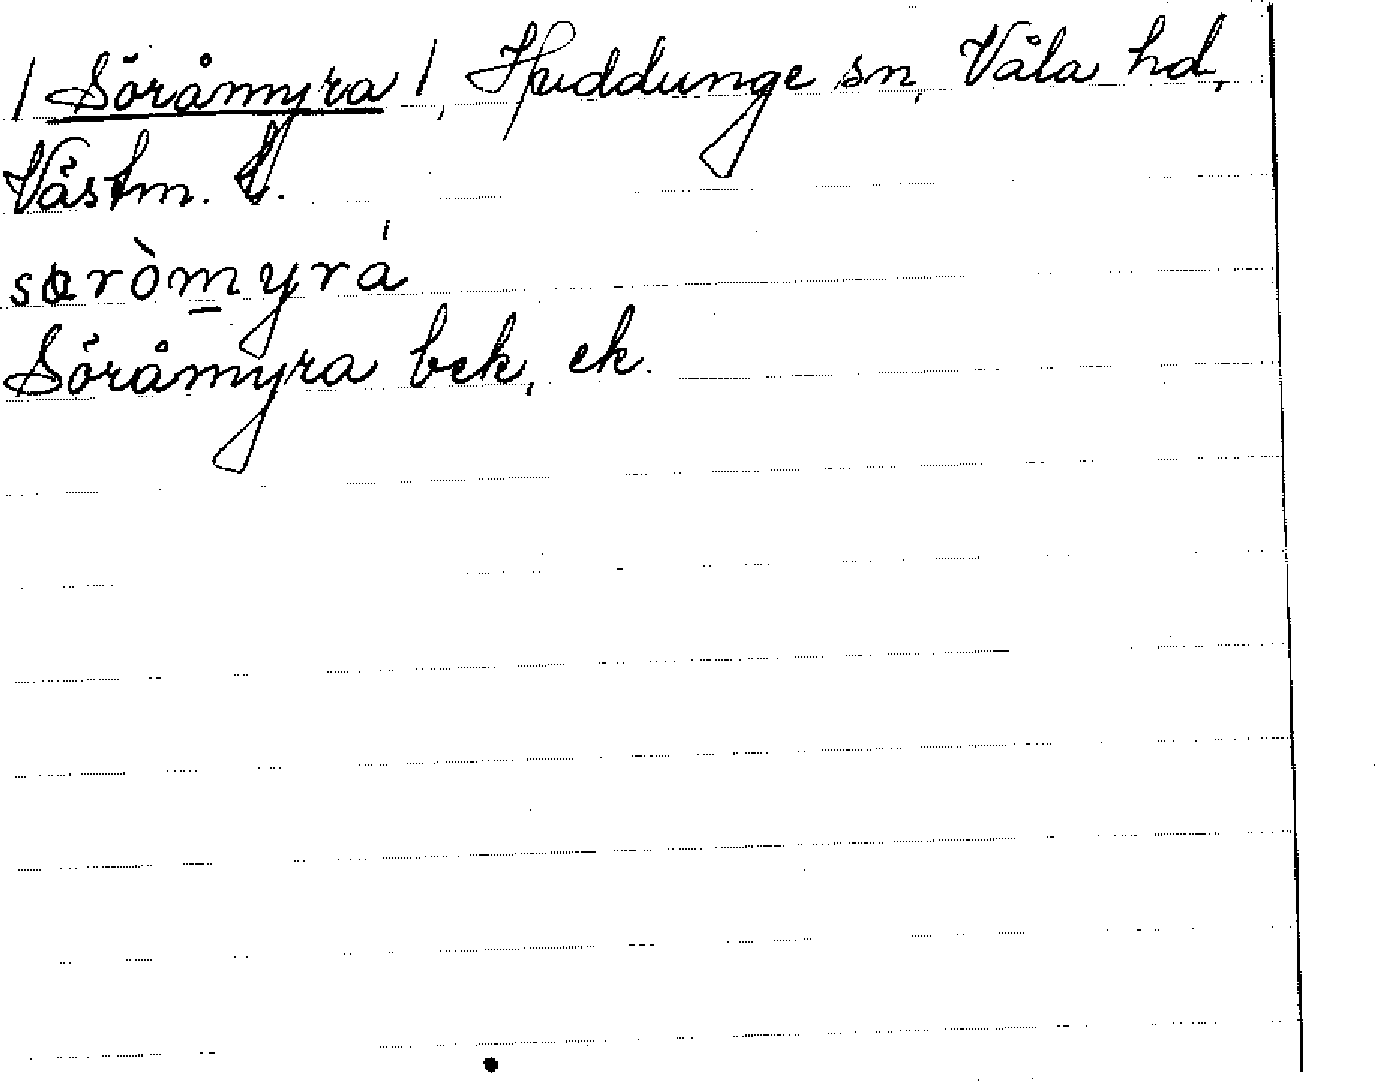 / Söråmyra /, Huddunge sn, Våla hd,
Västm. l.
særòmyrá
Söråmyra bek, ek.